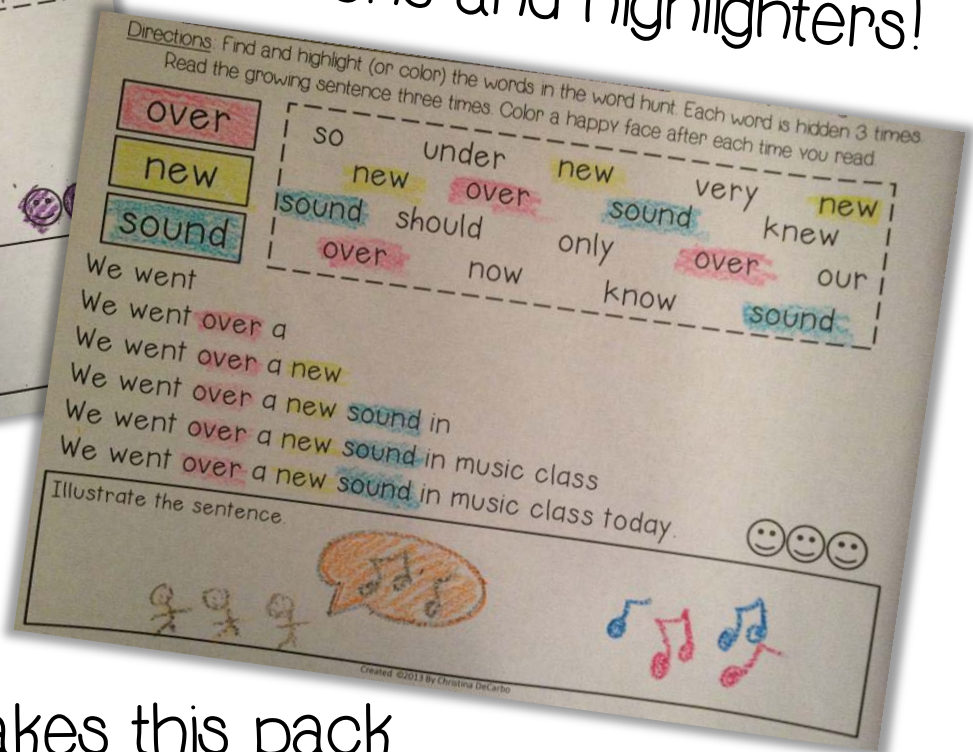 and highlighters!
Directions: Find and highlight (or color) the words in the word hunt. Each word is hidden 3 times.
Read the growing sentence three times. Color a happy face after each time you read.
over
new
sound
so under new very new
new over sound knew
sound should only over our
over now know sound
We went
We went over a
We went over a new
We went over a new sound in
We went over a new sound in music class
We went over a new sound in music class today.
Illustrate the sentence.
Created ©2013 By Christina DeCarbo
this pack